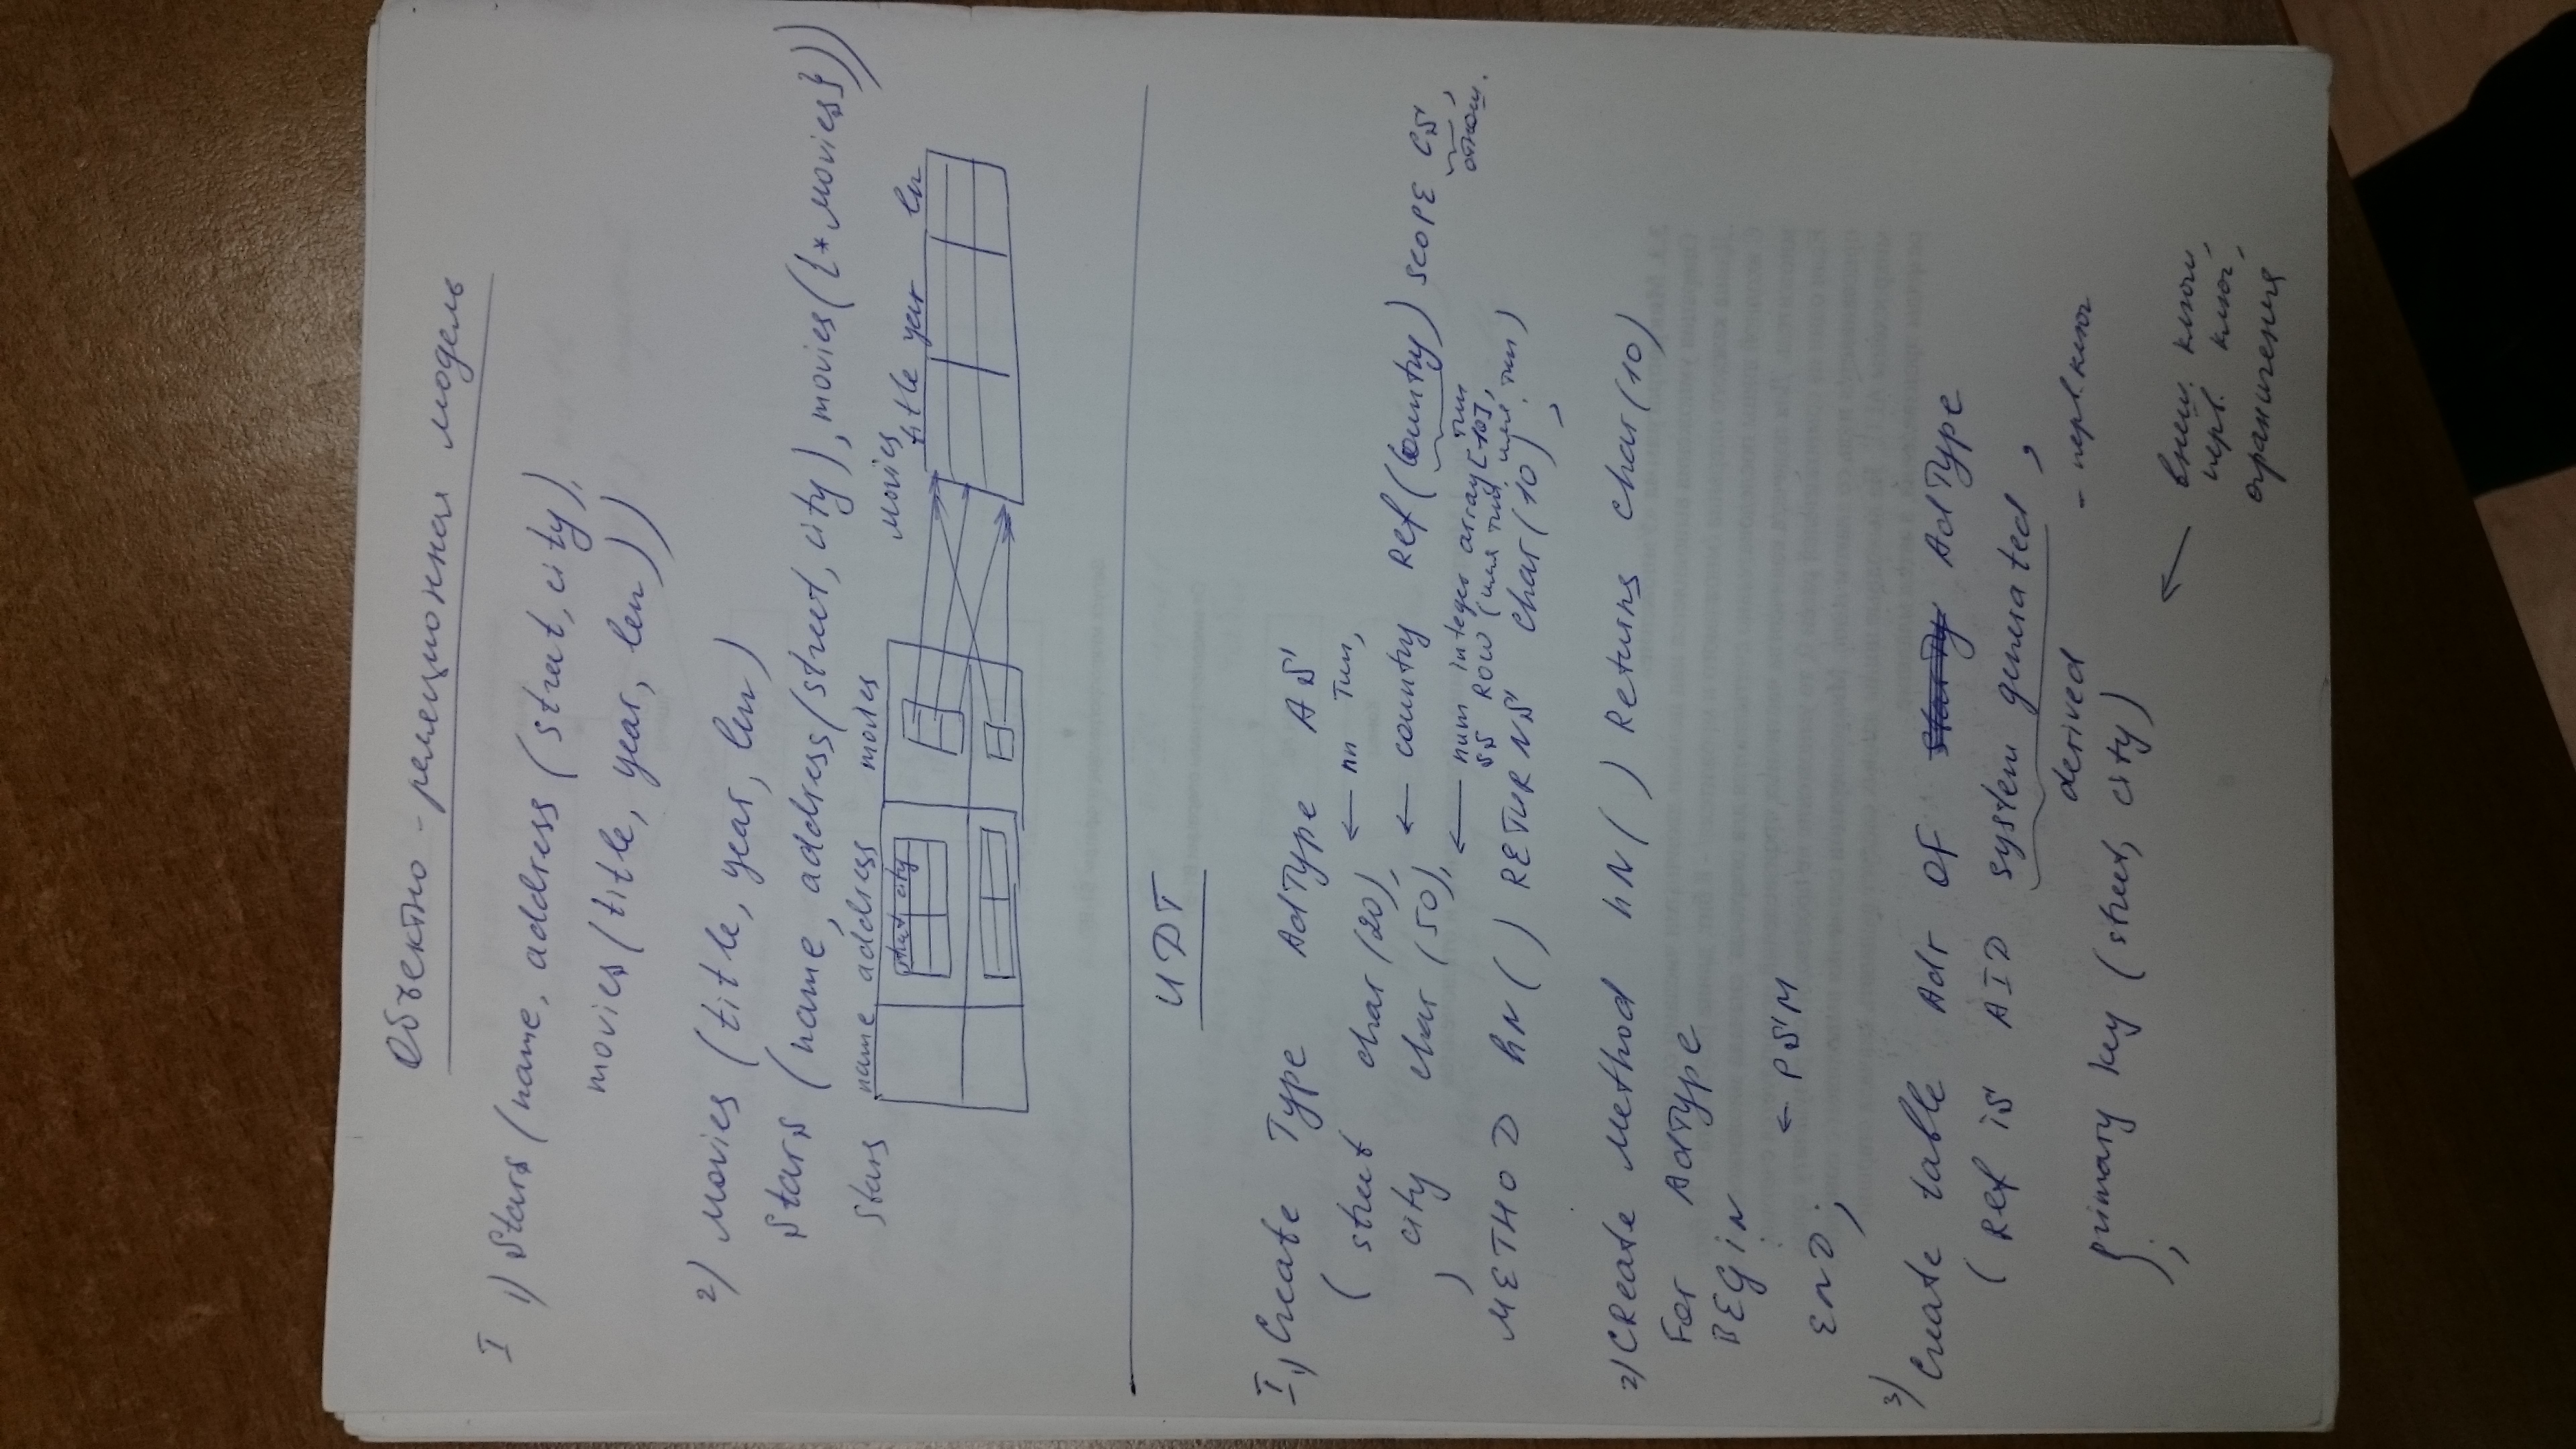 Объектно - реляционная модель
I 1) Stars (name, address (street, city),
movies (title, year, len))
2) Movies (title, year, len)
Stars (name, address (street, city), movies ({*Movies}))
Stars name address movies
street city
Movies
title year len
UDT
I) Create Type AdType AS
( street char (20), ← пп тип,
city char (50), ← country Ref (Country) SCOPE CS,
тип отнош.
) ← num integer array [10],
SS ROW (имя тип, имя тип)
METHOD hN ( ) RETURNS char (10);
2) CReate Method hN ( ) Returns char (10)
For AdType
BEGIN
← PSM
END;
3)
Create table Adr OF AdType
( Ref is AID system generated,
derived - перв. ключ
primary key (street, city)
);
← внеш. ключи,
перв. ключ,
ограничения